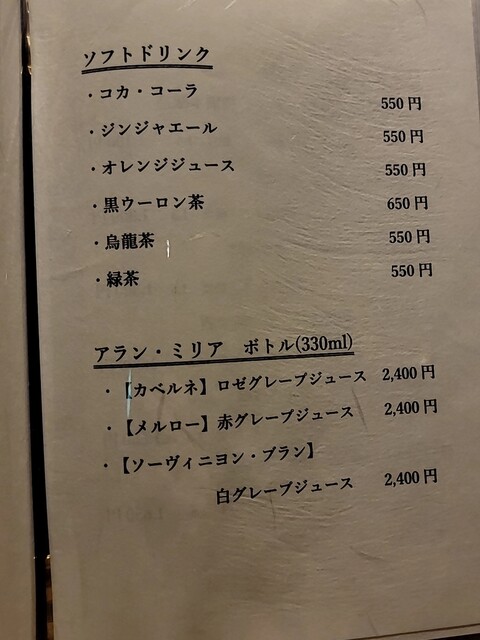 ソフトドリンク
・コカ・コーラ 550円
・ジンジャエール 550円
・オレンジジュース 550円
・黒ウーロン茶 650円
・烏龍茶 550円
・緑茶 550円
アラン・ミリア ボトル(330ml)
・【カベルネ】ロゼグレープジュース 2,400円
・【メルロー】赤グレープジュース 2,400円
・【ソーヴィニヨン・ブラン】
白グレープジュース 2,400円